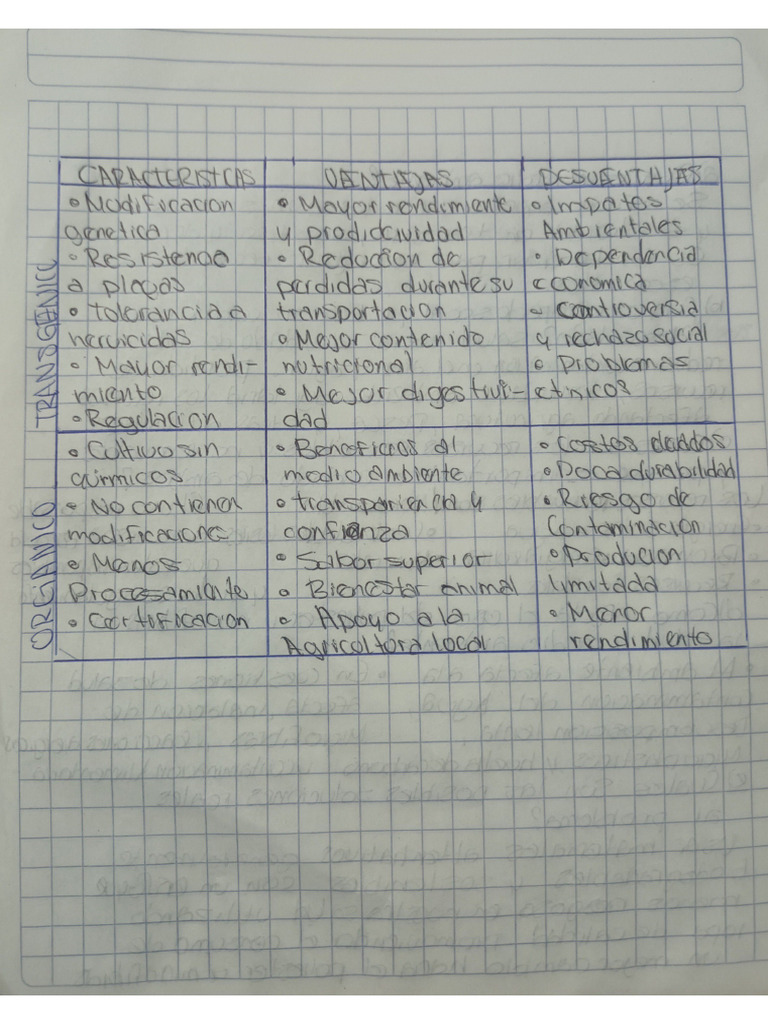 CARACTERISTCAS
VENTAJAS
DESVENTAJAS
TRANSGENICO
• Modificacion
genetica
• Resistencia
a plagas
• tolerancia a
hervicidas
• Mayor rendi-
miento
• Regulacion
• Mayor rendimiente
y prodidcividad
• Reduccion de
perdidas durante su
transportacion
• Mejor contenido
nutricional
• Mejor digestivi-
dad
• Impatos
Ambientales
• Dependencia
economica
- controversia
y rechazo social
• Problemas
ctinicos
ORGANICO
• Cultivo sin
quimicos
• No contiener
modificaciones
• Menos
Procesamiente
• Certificacion
• Beneficios al
medio ambiente
• transpariencia y
confienza
• Sabor superior
• Bienestar animal
• Apoyo a la
Agricoltora local
• Costos
• Poca durabilidad
• Riesgo de
Contaminacion
• Producion
limitada
• Menor
rendimiento